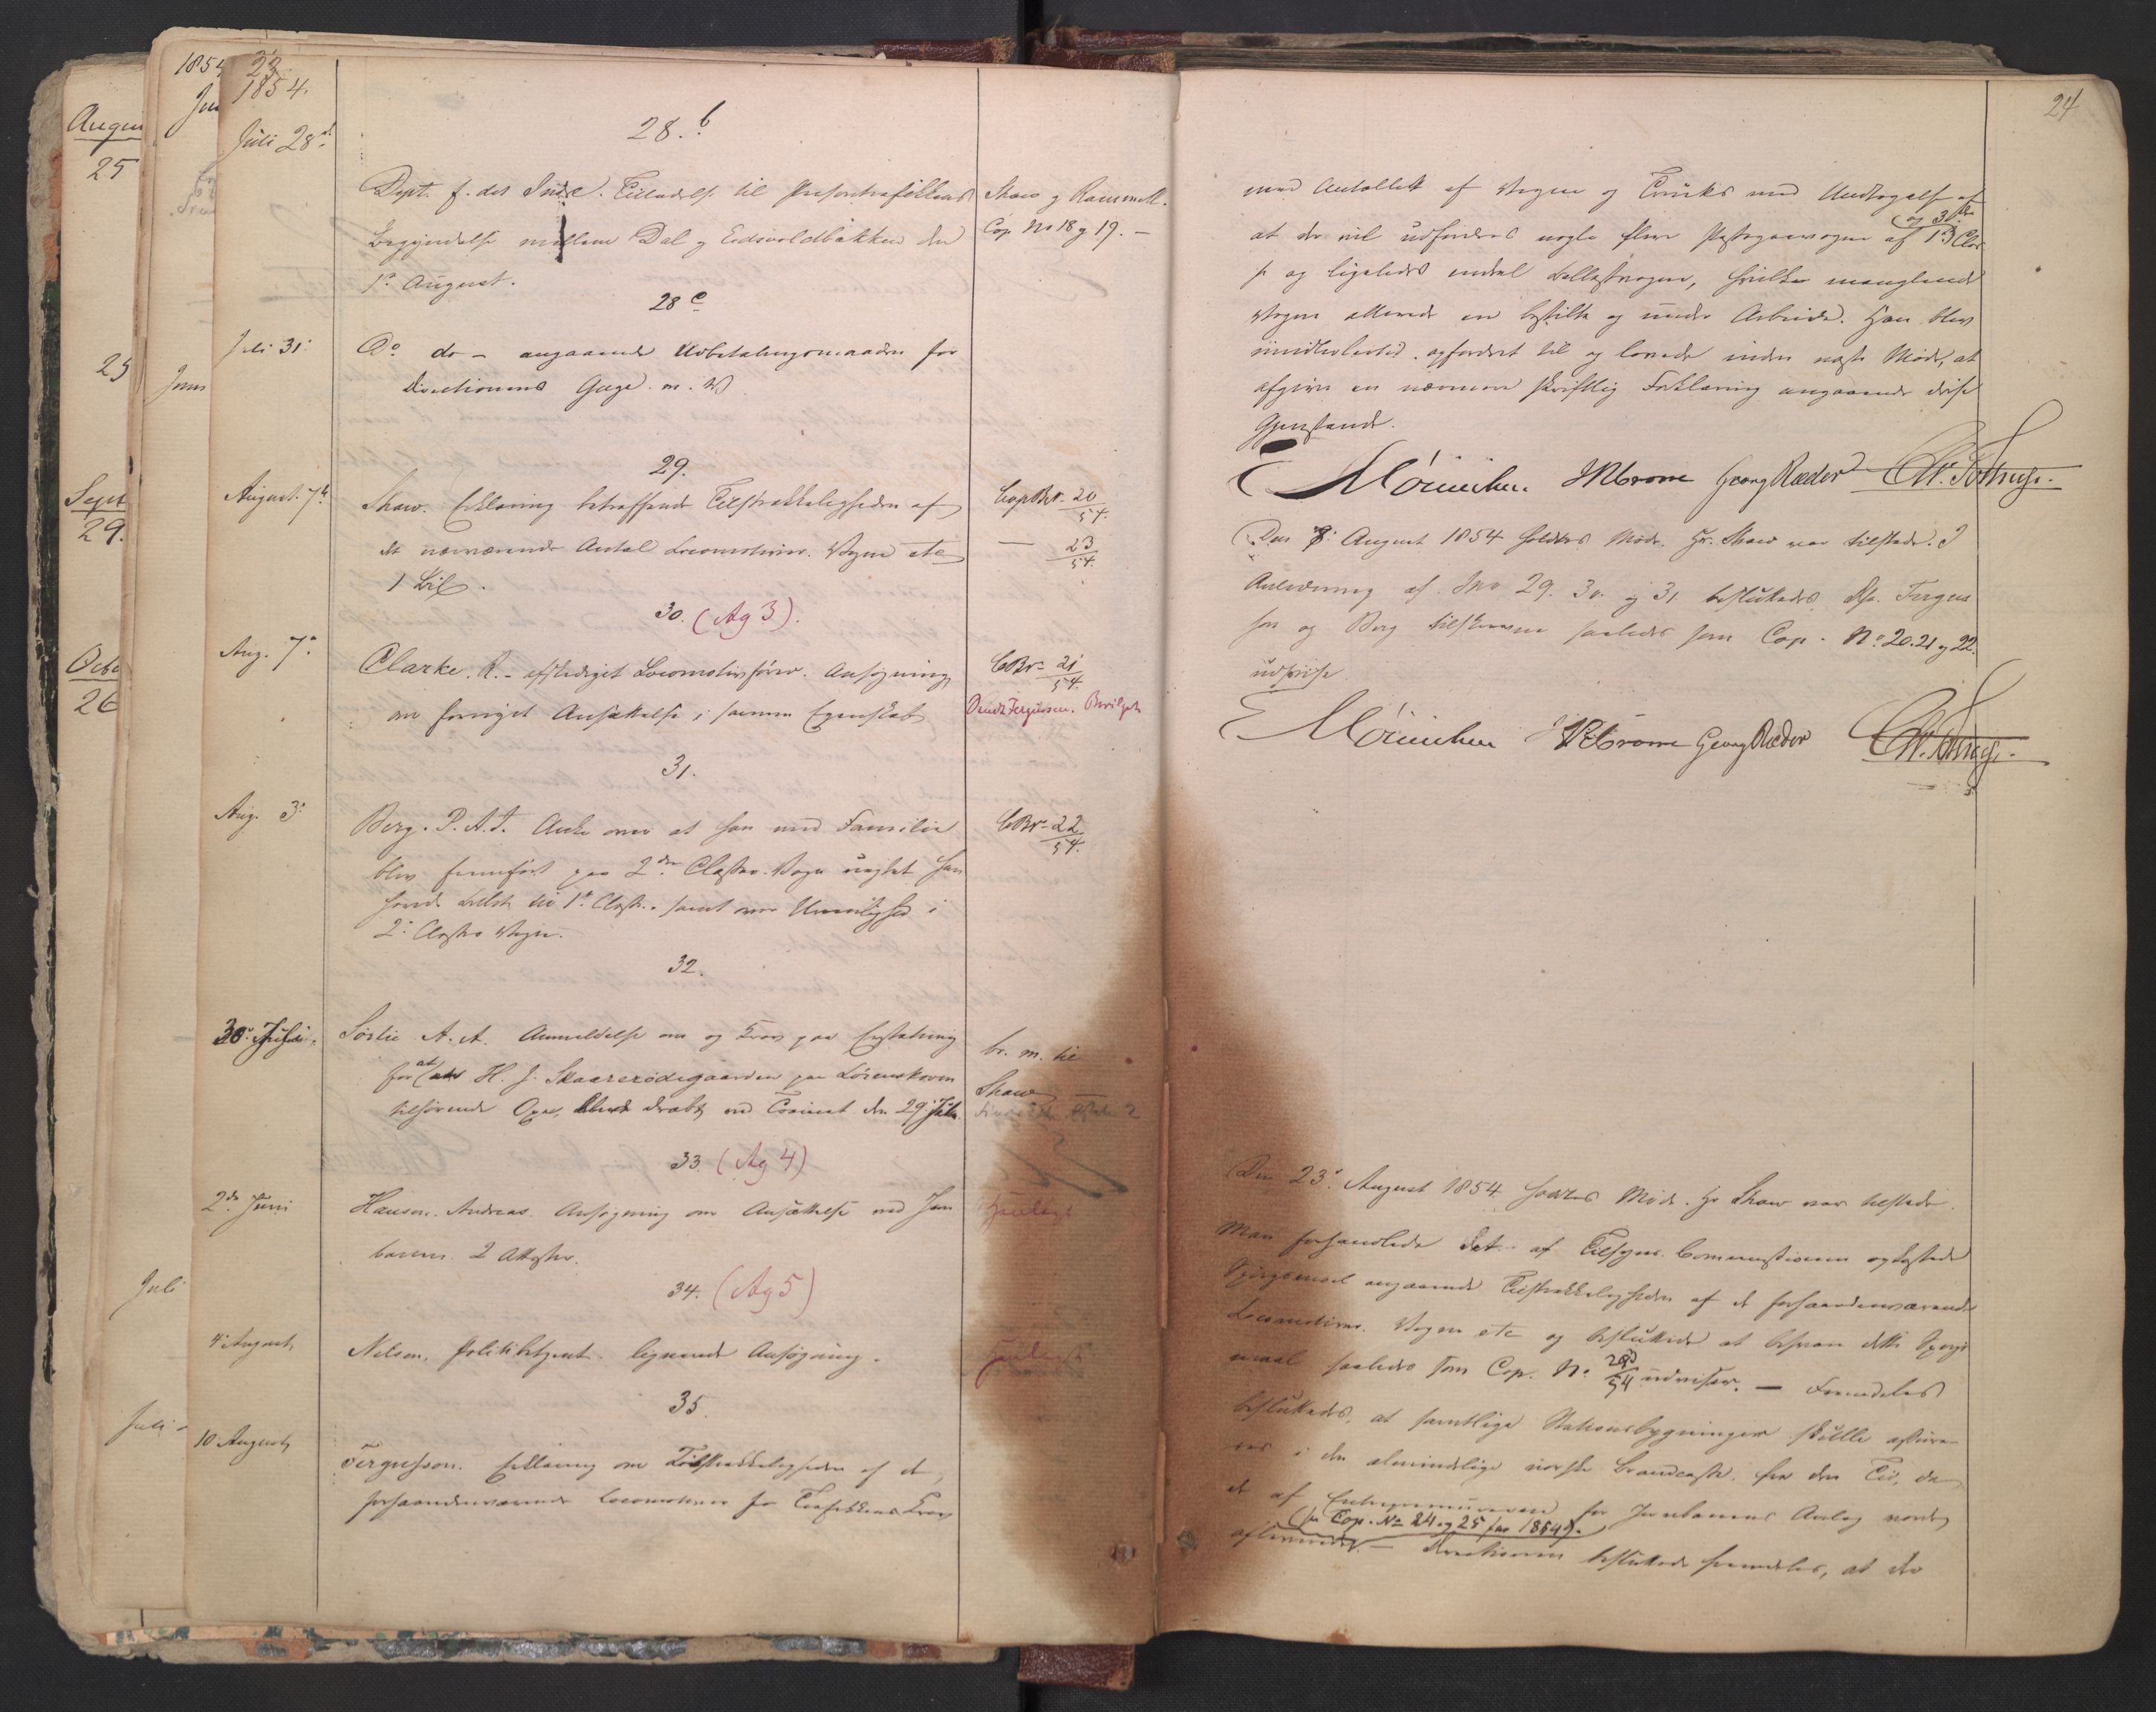 23
1854.
Juli 28de
28.b
Dept. f. det Indre. Tilladelse til Persontrafikkens
Begyndelse mellem Dal og Eidsvoldbakken den
1ste August.
Shaw og Rammell.
Cop No 18 og 19. –
28 c
Juli 31.
Do do – angaaende Udbetalingsmaaden for
Directionens Gage m. V.
29.
August. 7de
Shaw. Erklæring betræffende Tilstrækkeligheden af
det nærværende Antal Locomotiver. Vogne etc
1 Bil.
Cop Br. 20/54.
— 23/54.
30. (Ag 3).
Aug. 7de
Clarke. R. – afskediget Locomotivfører. Ansøgning
om fornyet Ansættelse i samme Egenskab
C Br – 21/54.
31.
Aug. 3.
Berg. P. A. J. Anke over at han med Familie
blev fremført paa 2den Classes Vogn uagtet han
havde Billet til 1ste Classe. samt over Urenlighed i
2. Classes Vogn.
C Br – 22/54.
32.
30. Juli.
Sørlie A. A. Anmeldelse om og Krav paa Erstatning
for at H. J. Skaarerødegaarden paa Lørenskoven
tilhørende Oxe, blev dræbt ved Toget den 29. Juli.
br. m. til
Shaw
33. (Ag 4)
2de Juni
Hansen. Andreas. Ansøgning om Ansættelse ved Jern
banen. 2 Attester.
Henlagt
34. (Ag 5)
4. August
Nelsen, Politibetjent. lignende Ansøgning.
Henlagt
35.
10 August
Fergusson. Erklæring om Tilstrækkeligheden af de
forhaandenværende Locomotiver for Trafikkens Krav
24
med Antallet af Vogne og Trucks med Undtagelse af
at der vil udfordres nogle flere Passagervogne af 1ste og 3die Clas
se og ligeledes endel Ballastvogne, hvilke manglende
Vogne allerede ere bestilte og under Arbeide. Han blev
imidlertid opfordret til og lovede inden næste Møde, at
afgive en nærmere skriftlig Forklaring angaaende disse
Gjenstande.
Georg Ræder
Den 8. August 1854 holdtes Møde. Hr. Shaw var tilstede. I
Anledning af No 29. 30. og 31 besluttedes Shaw. Fergus
son og Berg tilskrevne saaledes som Cop. No. 20. 21 og 22.
udviser.
Georg Ræder
Den 23. August 1854 holdtes Møde. Hr Shaw var tilstede.
Man forhandlede det af Tilsyns Commissionen opkastede
Spørgsmaal angaaende Tilstrækkeligheden af de forhaandenværende
Locomotiver. Vogne etc og besluttede at besvare dette Spørgs
maal saaledes som Cop. No. 23/54 udviser. – Fremdeles
besluttedes, at samtlige Stationsbygninger skulle assure-
res i den almindelige norske Brandcasse fra den Tid, da
de af Entrepreneurerne for Jernbanens Anlæg vorde
(se Cop. No 24 og 25 for 1854).
afleverede. – Directionen besluttede fremdeles, at der
1854
August
25
Juni
25
Sept
29.
Octo
26
Juli
Juli